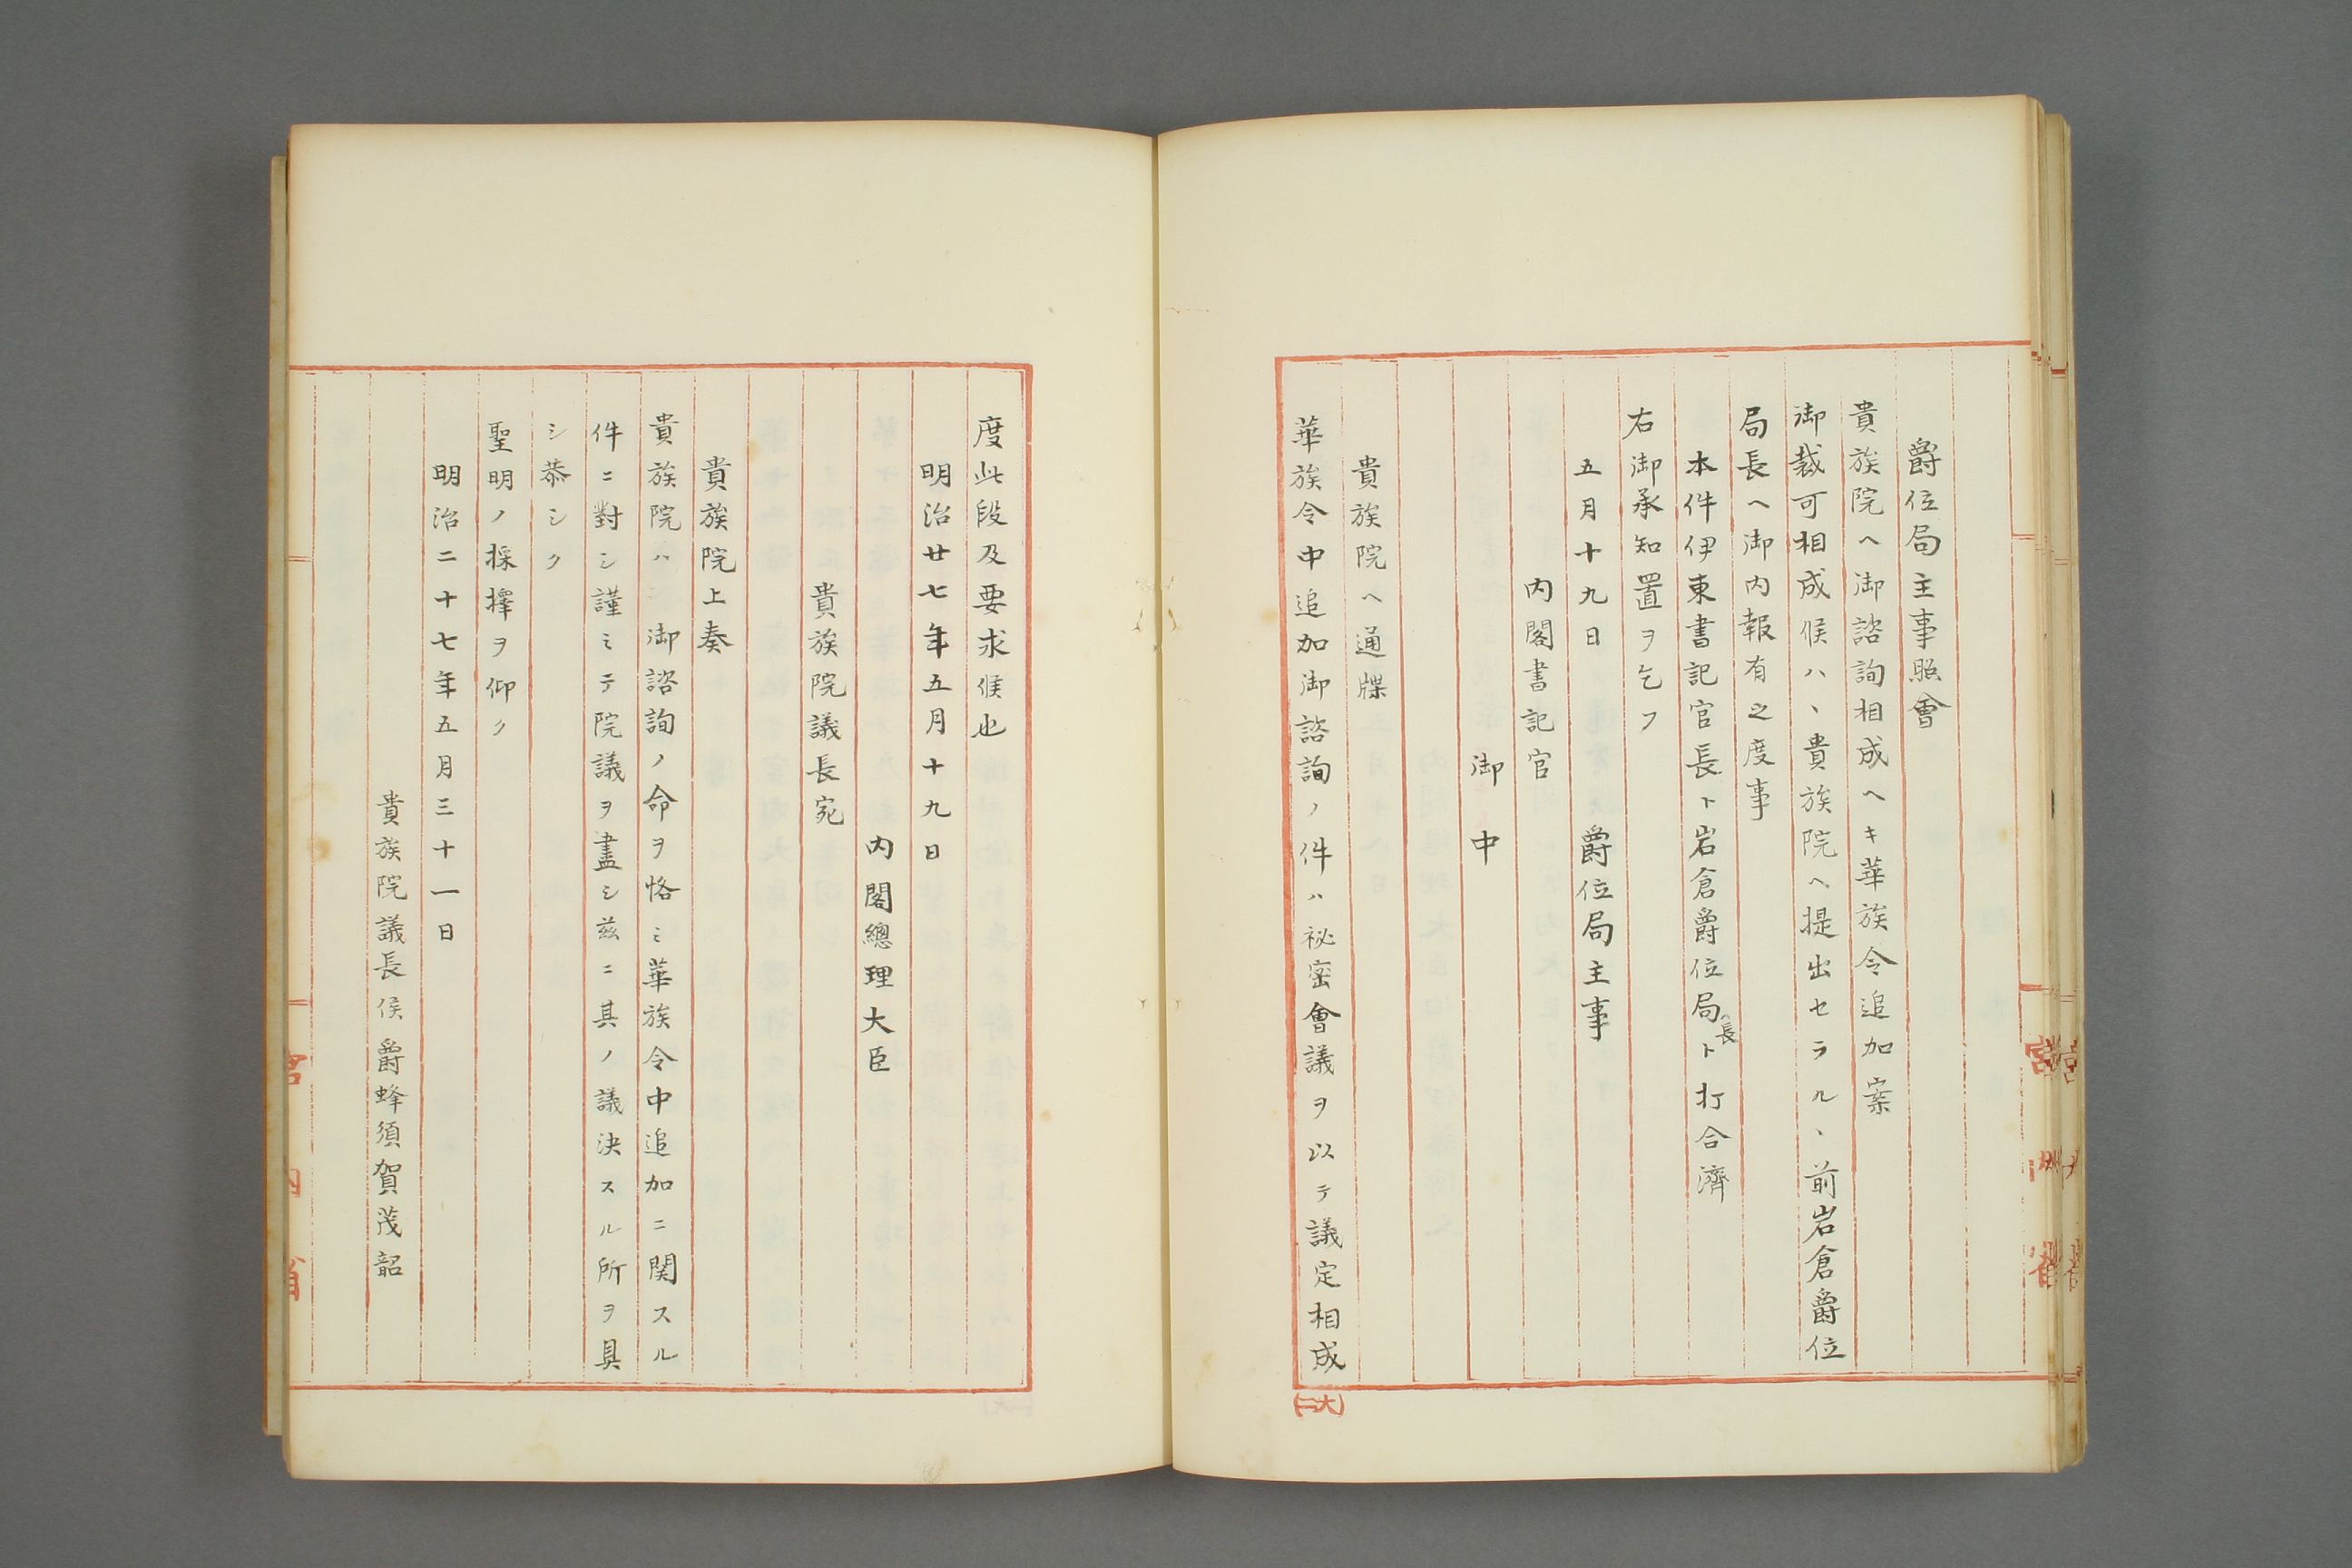 爵位局主事照會
貴族院ヘ御諮詢相成ヘキ華族令追加案
御裁可相成候ハヽ貴族院ヘ提出セラルヽ前岩倉爵位
局長ヘ御内報有之度事
本件伊東書記官長ト岩倉爵位局長ト打合濟
右御承知置ヲ乞フ
五月十九日　爵位局主事
内閣書記官
御中
貴族院ヘ通牒
華族令中追加御諮詢ノ件ハ祕密會議ヲ以テ議定相成
度此段及要求候也
明治廿七年五月十九日
内閣總理大臣
貴族院議長宛
貴族院上奏
貴族院ハ御諮詢ノ命ヲ恪ミ華族令中追加ニ関スル
件ニ對シ謹ミテ院議ヲ盡シ茲ニ其ノ議決スル所ヲ具
シ恭シク
聖明ノ採擇ヲ仰ク
明治二十七年五月三十一日
貴族院議長侯爵蜂須賀茂韶
宮内省